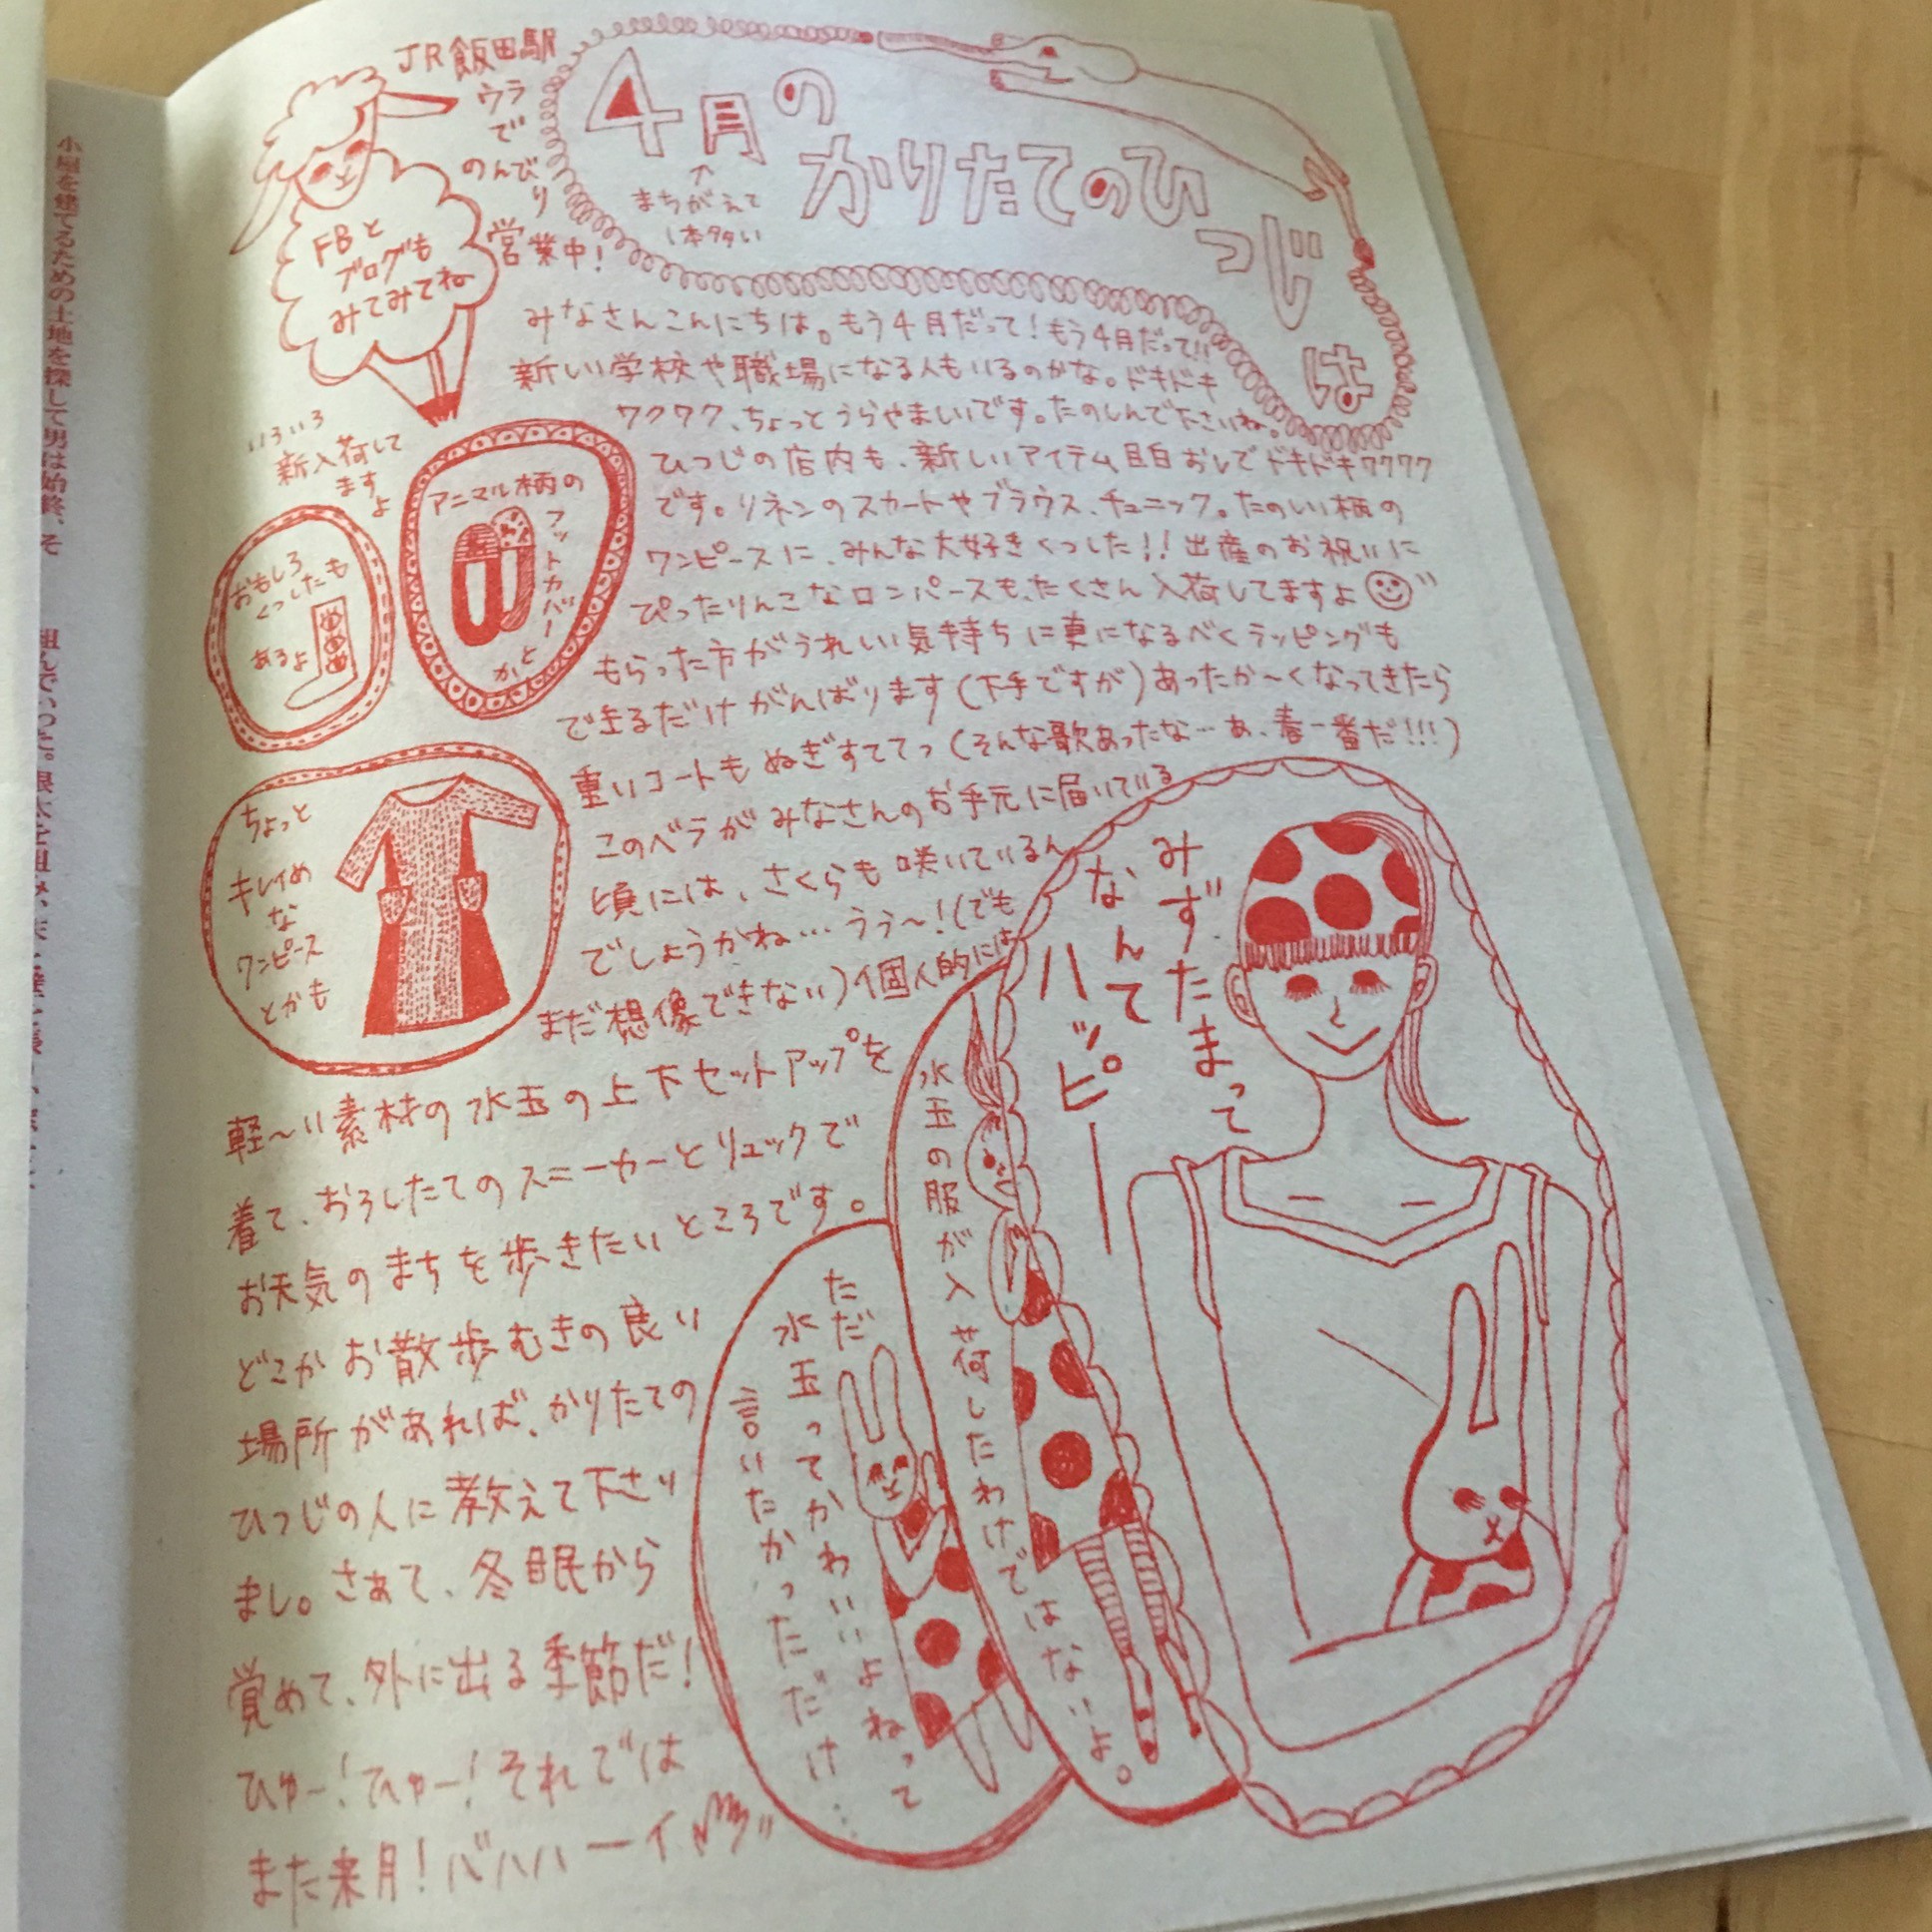 JR飯田駅
ウラ
で
のんび
り
営業中!
FBと
ブログも
みてみてね
4月の
かりたてのひつじ
は
↑
まちがえて
1本多い
みなさんこんにちは。もう4月だって!もう4月だって!!
新しい学校や職場になる人もいるのかな。ドキドキ
ワクワク、ちょっとうらやましいです。たのしんでださいね。
ひつじの店内も、新しいアイテム目白おしでドキドキワクワク
です。リネンのスカートやブラウス、チュニック。たのしい柄の
ワンピースに、みんな大好きくつした!!出産のお祝いに
ぴったりんこなロンパースも、たくさん入荷してますよ
もらった方がうれしい気持ちに更になるべくラッピングも
で出るだけがんばります(下手ですが)あったか〜くなってきたら
重いコートもぬぎすててっ(そんな歌あったな…あ、春一番だ!!!)
このペラがみなさんのお手元に届いている
頃には、さくらも咲いているん
でしょうかね…うぅ〜!(でも
まだ想像できない)個人的には
軽〜い素材の水玉の上下セットアップを
着て、おろしたてのスニーカーとリュックで
お天気のまちを歩きたいところです。
どこかお散歩むきの良い
場所があれば、かりたての
ひつじの人に教えて下さい
まし。さぁて、冬眠から
覚めて、外に出る季節だ!
ひゅー!ひゅー!それでは
また来月!バハハーイ
いろいろ
新入荷して
ます
よ
おもしろ
くつしたも
あるよ
アニマル柄の
フットカバー
とか
ちょっと
キレイめ
な
ワンピース
とかも
みずたまって
なんて
ハッピー
水玉の服が入荷したわけではないよ。
ただ
水玉ってかわいいよねって
言いたかっただけ…
小屋を建てるための土地を探して男は始終、そ